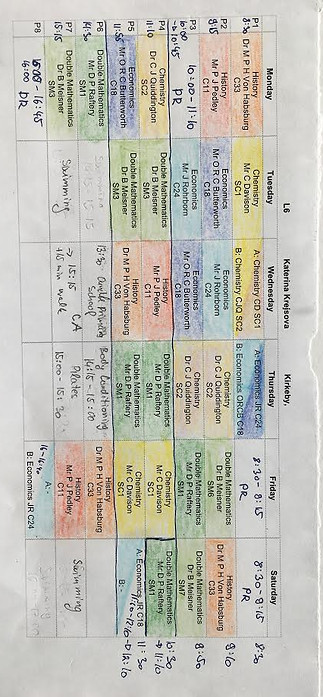 L6 Katerina Krejsova Kirkeby.
Monday Tuesday Wednesday Thursday Friday Saturday
P1
8:30
History
Dr M P H Von Habsburg
C33
Chemistry
Mr C Davison
SC1
A: Chemistry, CD SC1
B: Chemistry CJQ SC2
A: Economics JR C24
B: Economics ORCB C18
8:30 - 9:15
PR
8:30 - 9:15
PR
8:30
P2
9:15
History
Mr P J Pedley
C11
Economics
Mr O R C Butterworth
C18
Economics
Mr J Rohrborn
C24
Chemistry
Dr C J Quiddington
SC2
Double Mathematics
Dr B Meisner
SM6
History
Dr M P H Von Habsburg
C33
9:10
P3
10:00 - 11:10
PR
Economics
Mr J Rohrborn
C24
Economics
Mr O R C Butterworth
C18
Chemistry
Dr C J Quiddington
SC2
Double Mathematics
Mr D P Raftery
SM7
Double Mathematics
Dr B Meisner
9:50
P4
11:10
Chemistry
Dr C J Quiddington
SC2
Double Mathematics
Dr B Meisner
SM3
History
Mr P J Pedley
C11
Double Mathematics
Mr D P Raftery
SM1
Chemistry
Mr C Davison
SC1
Double Mathematics
Mr D P Raftery
SM1
10:30
→ 11:10
P5
11:55
Economics
Mr O R C Butterworth
C18
Double Mathematics
Dr B Meisner
SM3
History
Dr M P H Von Habsburg
C33
Double Mathematics
Mr D P Raftery
SM1
Chemistry
Mr C Davison
SC1
A: Economics, JR C18
B: -
11:30
→ 12:10
P6
14:30
Double Mathematics
Mr D P Raftery
SM1
Body Conditioning
History
Dr M P H Von Habsburg
C33
P7
15:15
Double Mathematics
Dr B Meisner
SM3
Swimming
→ 15:15 CA
+15 min walk
Pilates
15:00 - 15:30
History
Mr P J Pedley
C11
Swimming
P8
16:00
DR
A: -
B: Economics JR C24